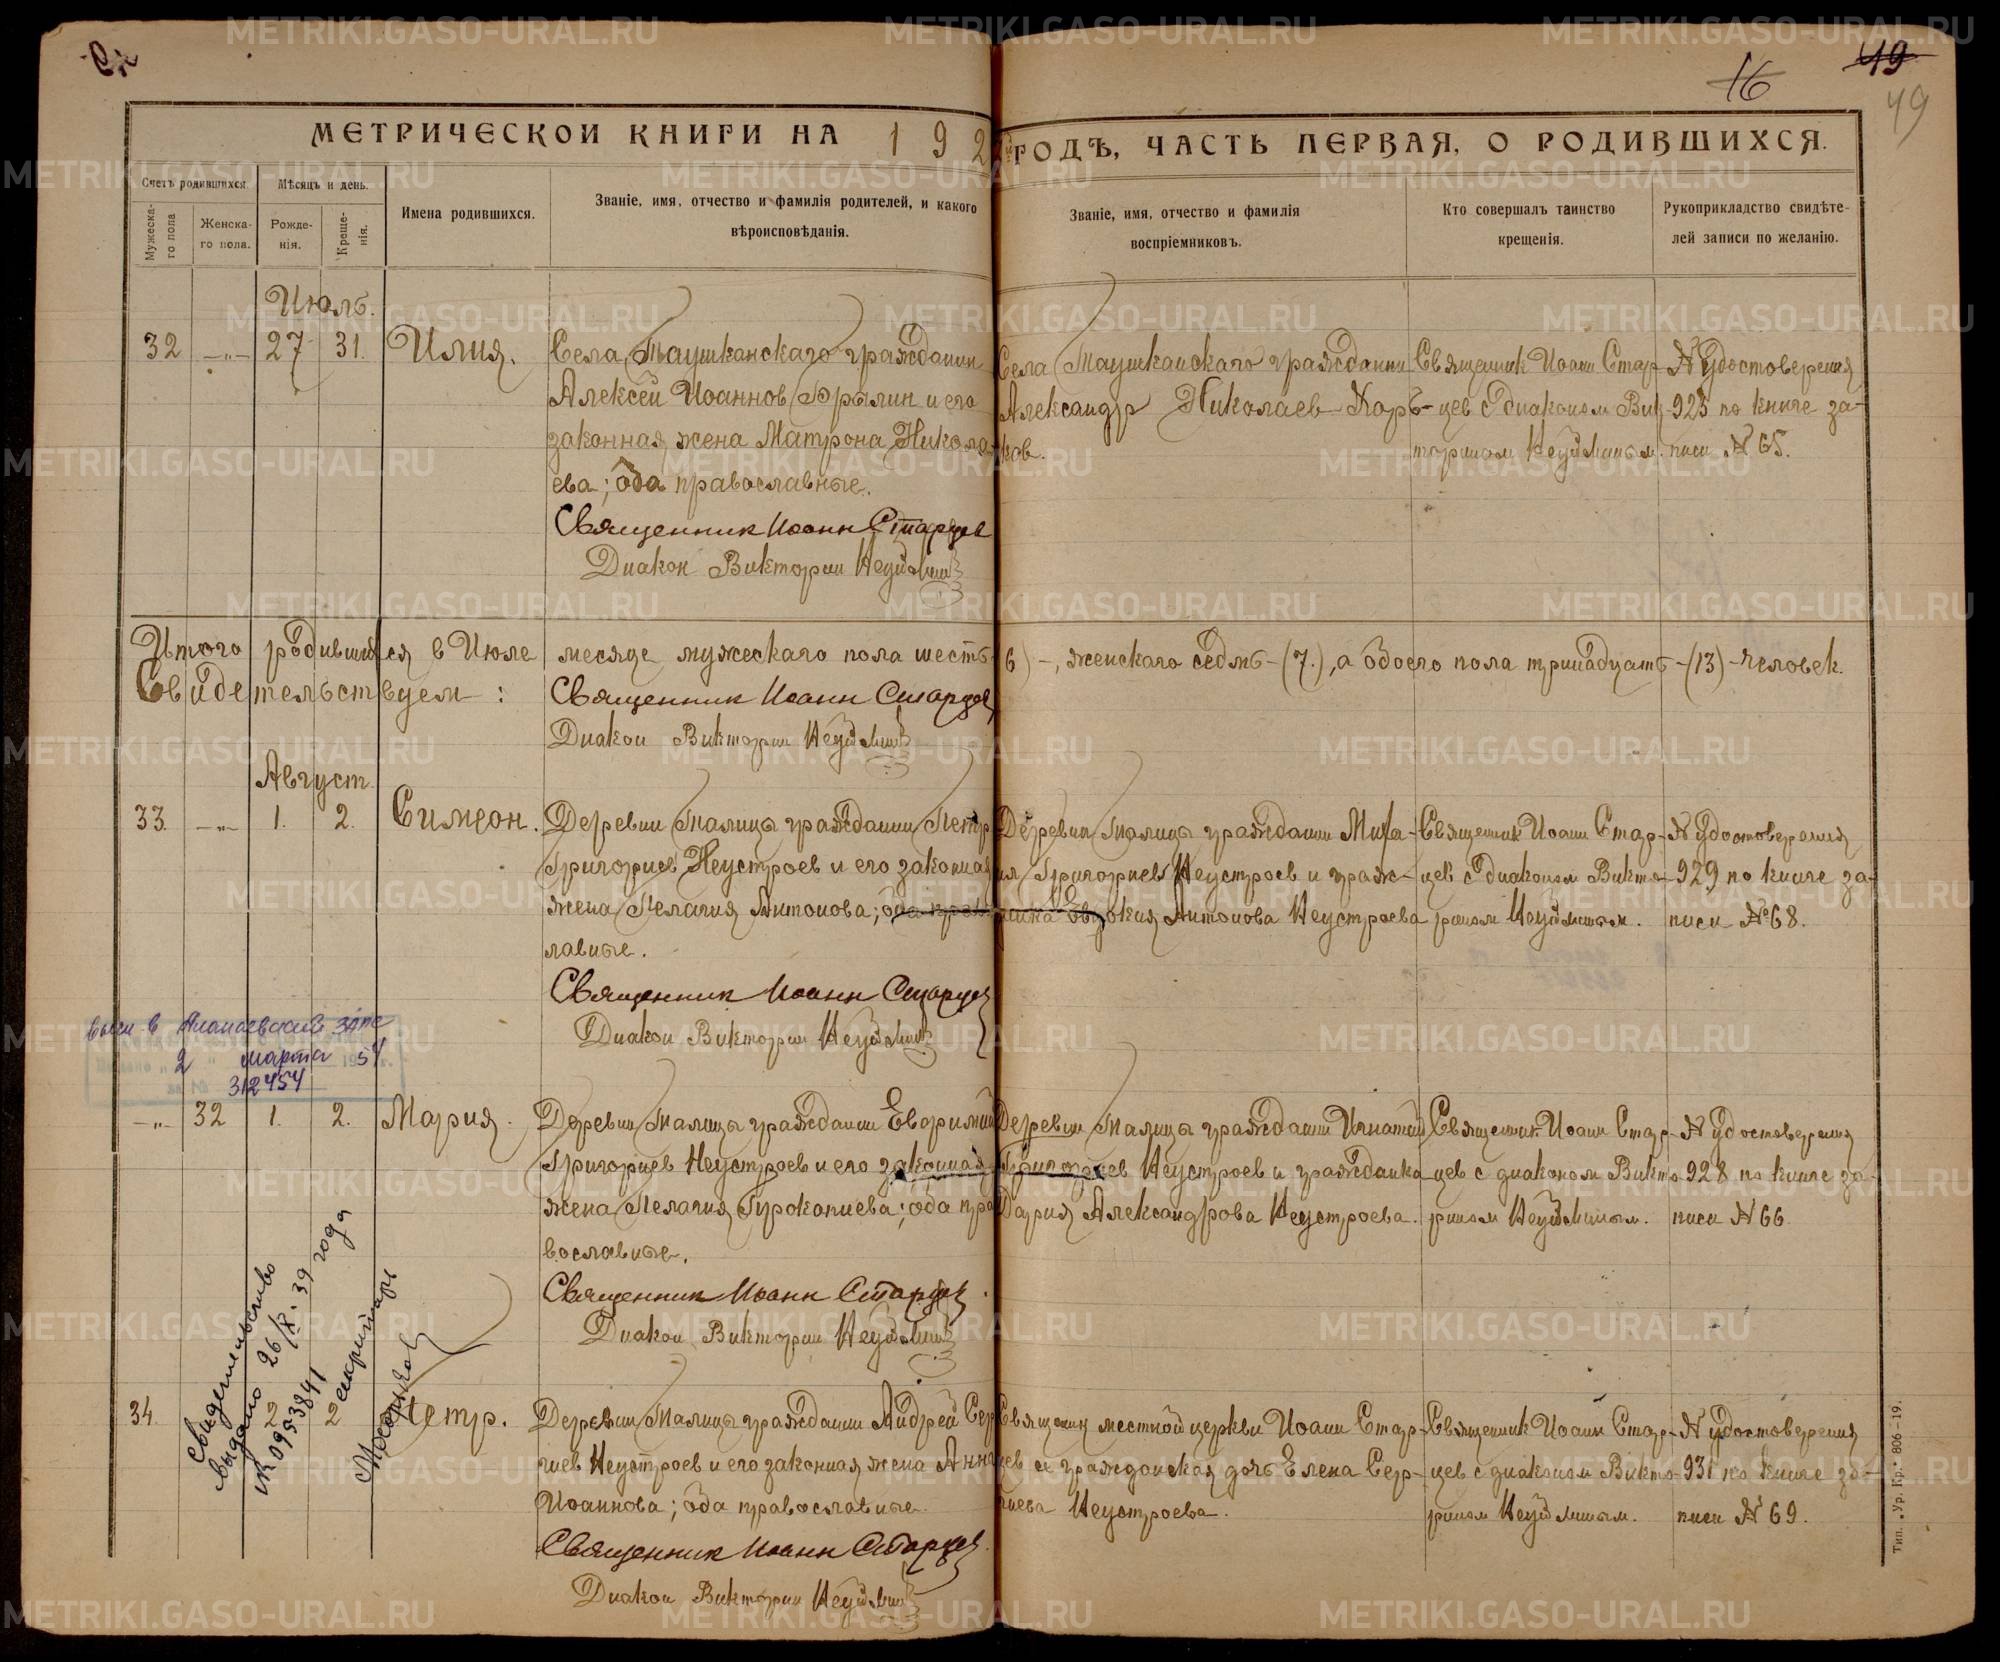 16
19
49
МЕТРИЧЕСКОЙ КНИГИ НА 192 ГОДЪ, ЧАСТЬ ПЕРВАЯ, О РОДИВШИХСЯ.
Счетъ родившихся.
Мѣсяцъ и день.
Мужеска-
го пола
Женска-
го пола.
Рожде-
нія.
Креще-
нія.
Имена родившихся.
Званіе, имя, отчество и фамилія родителей, и какого
вѣроисповѣданія.
Званіе, имя, отчество и фамилія
воспріемниковъ.
Кто совершалъ таинство
крещенія.
Рукоприкладство свидѣте-
лей записи по желанію.
Июль.
32 —„— 27 31. Илия.
Села Таушканскаго гражданин
Алексей Иоаннов Юрылин и его
законная жена Матрона Никола
ева; оба православные.
Священник Иоанн Старцев
Диакон Викторин Неуймин
Села Таушканскаго гражданин
Александр Николаев
ков.
Священник Иоанн Стар-
цев с диаконом Вик-
торином Неуйминым.
№ Удостоверения
923 по книге за-
писи № 65.
Итого родившихся в Июле месяце мужескаго пола шесть (6) –, женскаго седмь – (7.), а обоего пола тринадцать – (13) – человек.
Свидетельствуем:
Священник Иоанн Старцев
Диакон Викторин Неуймин
Август.
33. —„— 1. 2. Симеон.
Деревни Талицы гражданин Петр
Григориев Неустроев и его законная
жена Пелагия Антонова; оба право
лавные.
Священник Иоанн Старцев
Диакон Викторин Неуймин
Деревни Талицы гражданин Миха-
ил Григориев Неустроев и граж-
данка Евдокия Антонова Неустроева
Священник Иоанн Стар-
цев с диаконом Викто-
рином Неуйминым.
№ Удостоверения
929 по книге за-
писи № 68.
высл. в Алапаевский загс
2 марта 54
312454
—„— 32 1. 2. Мария.
Деревни Талицы гражданин Евфимий
Григориев Неустроев и его законная
жена Пелагия Прокопиева; оба пра
вославные.
Священник Иоанн Старцев
Диакон Викторин Неуймин
Деревни Талицы гражданин Игнатий
Григориев Неустроев и гражданка
Дария Александрова Неустроева.
Священник Иоанн Стар-
цев с диаконом Викто-
рином Неуйминым.
№ удостоверения
928 по книге за-
писи № 66.
свидетельство
выдано 26/X. 39 года
№ 0953841
секретарь
34. 2 2 Петр.
Деревни Талицы гражданин Андрей Сер
гиев Неустроев и его законная жена Анна
Иоаннова; оба православные.
Священник Иоанн Старцев.
Диакон Викторин Неуймин
Священник местной церкви Иоанн Стар-
цев и гражданская дочь Елена Сер-
гиева Неустроева.
Священник Иоанн Стар-
цев с диаконом Викто-
рином Неуйминым.
№ удостоверения
931 по книге за-
писи № 69.
Тип. „Ур. Кр.“ 806–19.
METRIKI.GASO-URAL.RU